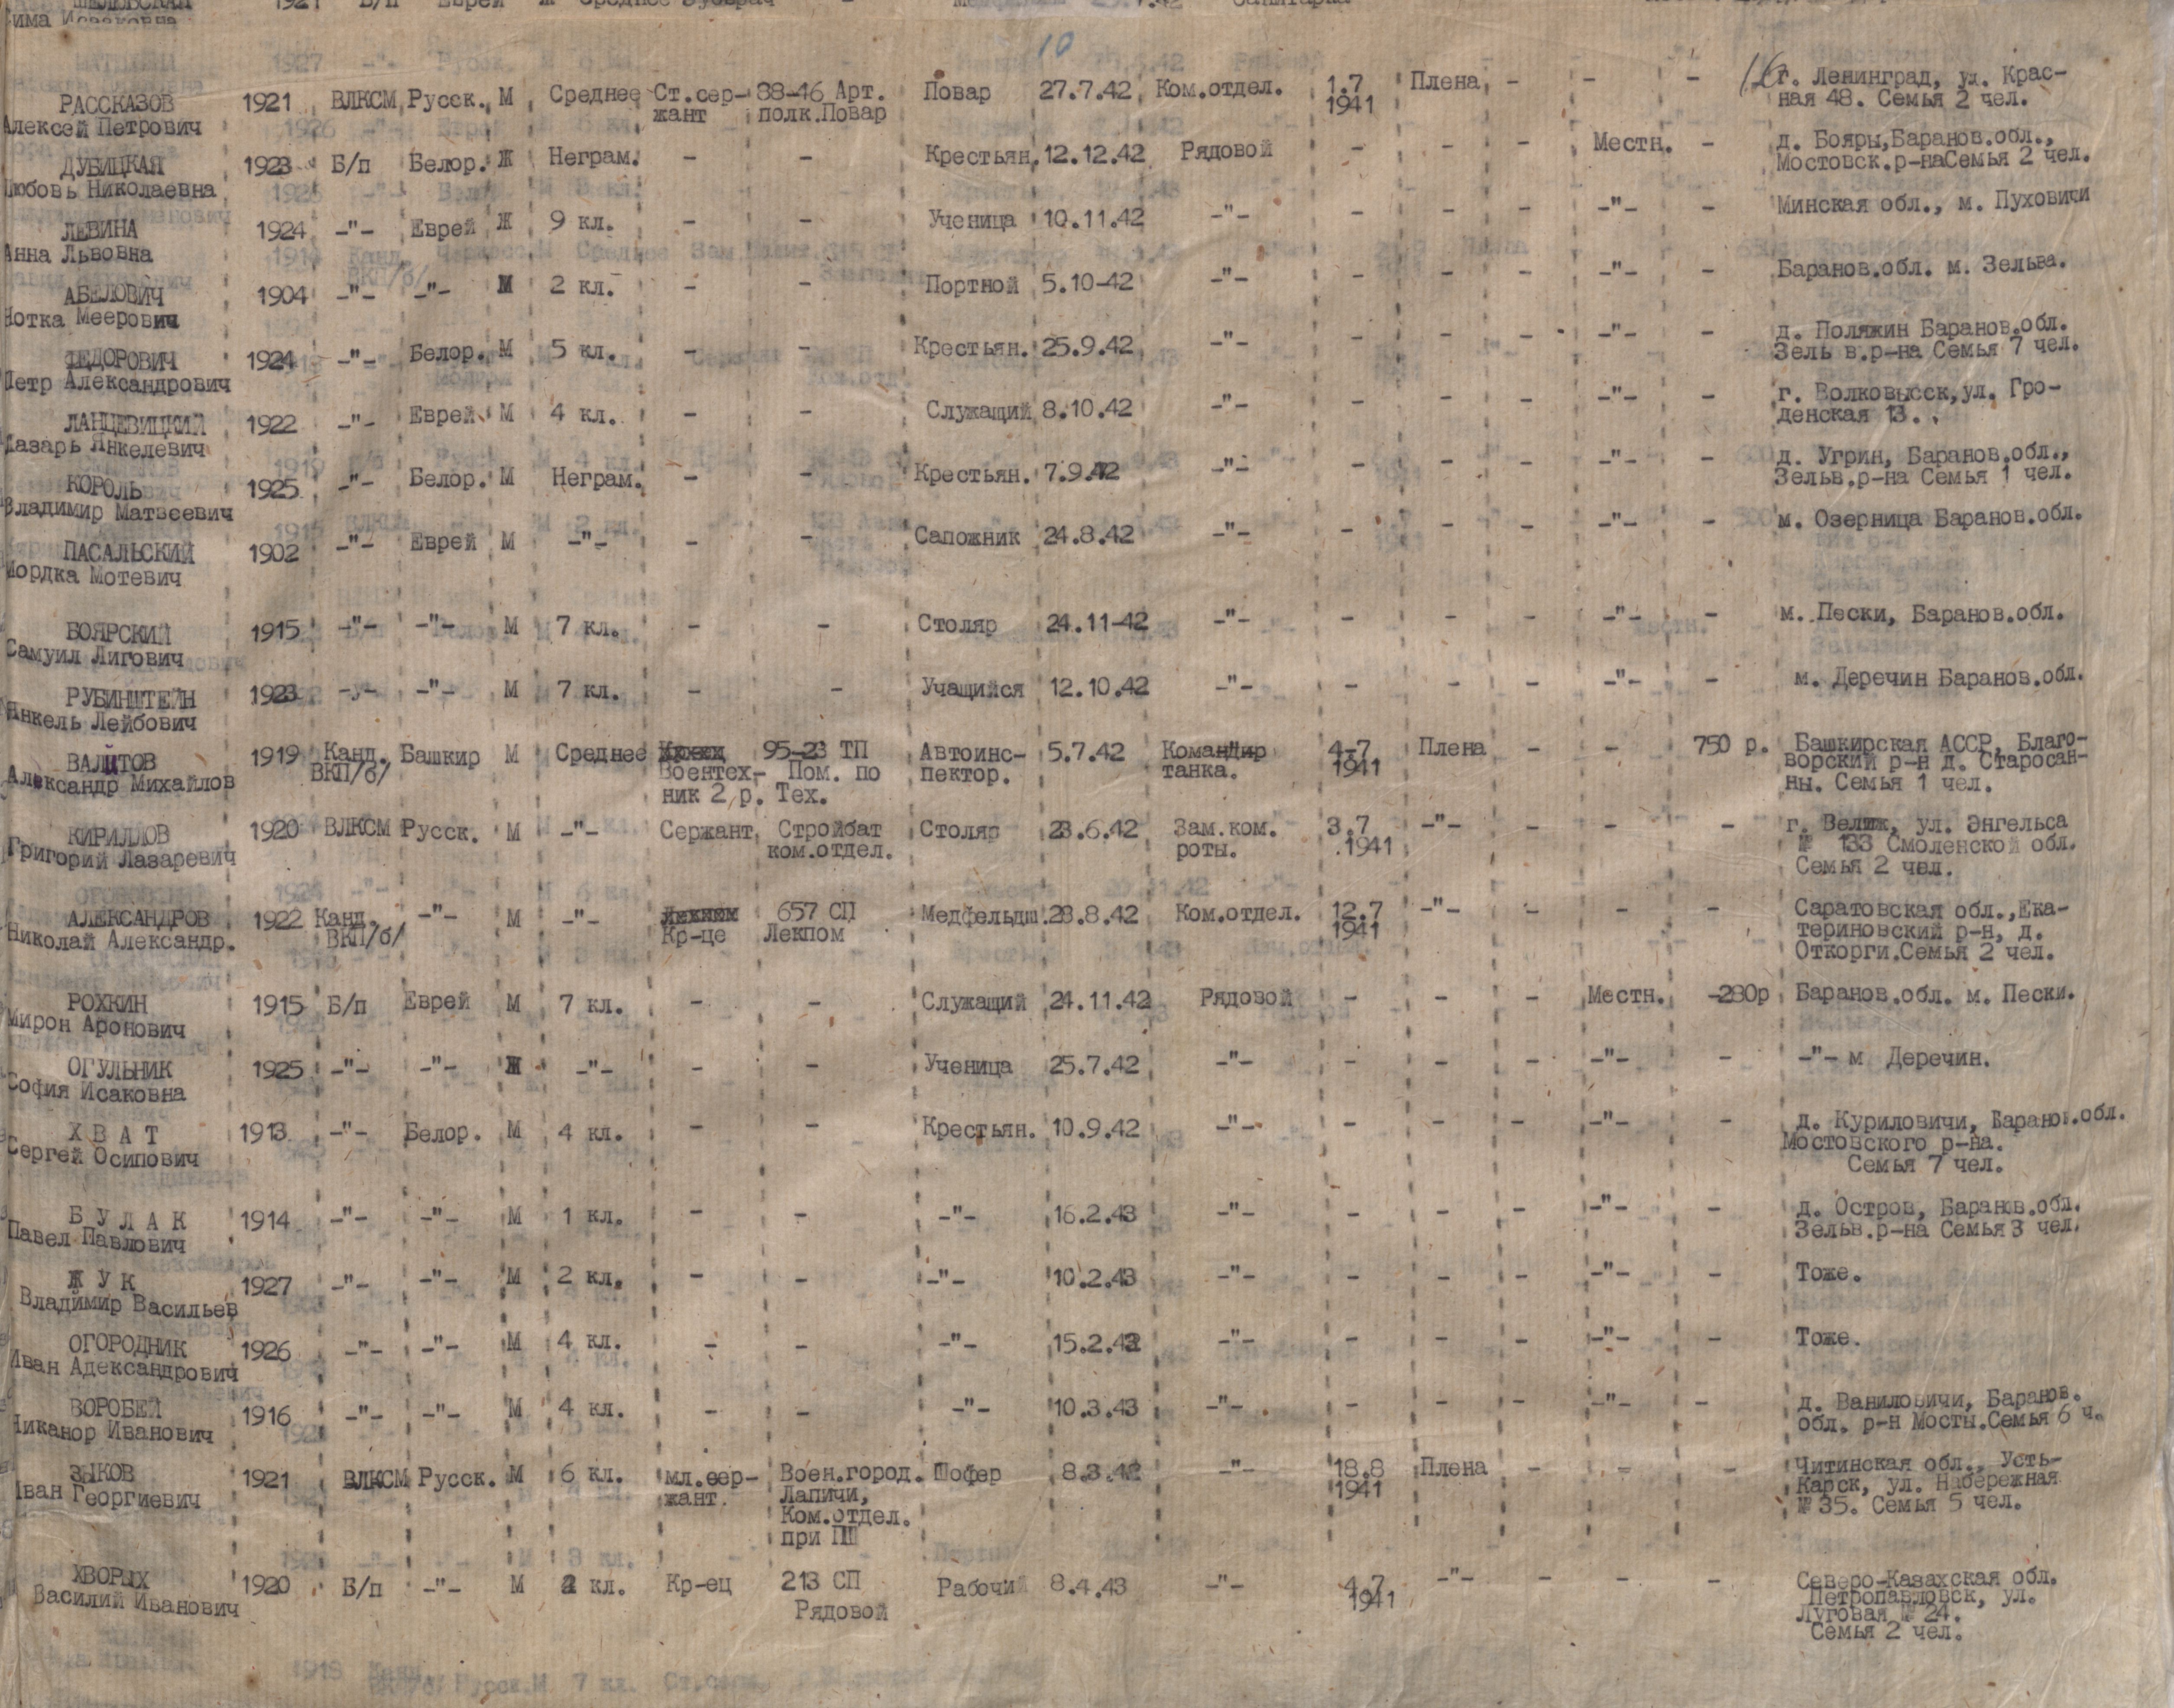 10
РАССКАЗОВ 1921 ВЛКСМ Русск. М Среднее Ст.сер- 88-46 Арт. Повар 27.7.42 Ком.отдел. 1.7 Плена - - - г. Ленинград, ул. Крас-
Алексей Петрович жант полк.Повар 1941 ная 48. Семья 2 чел.
ДУБИЦКАЯ 1923 Б/п Белор. Ж Неграм. - - Крестьян. 12.12.42 Рядовой - - - Местн. - д. Бояры,Баранов.обл.,
Любовь Николаевна Мостовск.р-наСемья 2 чел.
ЛЕВИНА 1924 -"- Еврей Ж 9 кл. - - Ученица 10.11.42 -"- - - - -"- - Минская обл., м. Пуховичи
Анна Львовна
АБЕЛОВИЧ 1904 -"- -"- М 2 кл. - - Портной 5.10-42 -"- - - - -"- - Баранов.обл. м. Зельва.
Нотка Меерович
ФЕДОРОВИЧ 1924 -"- Белор. М 5 кл. - - Крестьян. 25.9.42 -"- - - - -"- - д. Поляжин Баранов.обл.
Петр Александрович Зель в.р-на Семья 7 чел.
ЛАНЦЕВИЦКИЙ 1922 -"- Еврей М 4 кл. - - Служащий 8.10.42 -"- - - - -"- - г. Волковысск,ул. Гро-
Лазарь Янкелевич денская 13.
КОРОЛЬ 1925 -"- Белор. М Неграм. - - Крестьян. 7.9.42 -"- - - - -"- - д. Угрин, Баранов.обл.,
Владимир Матвеевич Зельв.р-на Семья 1 чел.
ПАСАЛЬСКИЙ 1902 -"- Еврей М -"- - - Сапожник 24.8.42 -"- - - - -"- - м. Озерница Баранов.обл.
Мордка Мотевич
БОЯРСКИЙ 1915 -"- -"- М 7 кл. - - Столяр 24.11-42 -"- - - - -"- - м. Пески, Баранов.обл.
Самуил Лигович
РУБИНШТЕЙН 1923 -у- -"- М 7 кл. - - Учащийся 12.10.42 -"- - - - -"- - м. Деречин Баранов.обл.
Янкель Лейбович
ВАЛИТОВ 1919 Канд. Башкир М Среднее 95-23 ТП Автоинс- 5.7.42 Командир 4-7 Плена - - 750 р. Башкирская АССР, Благо-
Александр Михайлов ВКП/б/ Воентех- Пом. по пектор. танка. 1941 ворский р-н д. Старосан-
ник 2 р. Тех. ны. Семья 1 чел.
КИРИЛЛОВ 1920 ВЛКСМ Русск. М -"- Сержант Стройбат Столяр 23.6.42 Зам.ком. 3.7 -"- - - - г. Велиж, ул. Энгельса
Григорий Лазаревич ком.отдел. роты. 1941 № 133 Смоленской обл.
Семья 2 чел.
АЛЕКСАНДРОВ 1922 Канд. -"- М -"- 657 СП Медфельдш. 28.8.42 Ком.отдел. 12.7 -"- - - - Саратовская обл.,Ека-
Николай Александр. ВКП/б/ Кр-це Лекпом 1941 териновский р-н, д.
Откорги.Семья 2 чел.
РОХКИН 1915 Б/п Еврей М 7 кл. - - Служащий 24.11.42 Рядовой - - - Местн. -280р Баранов.обл. м. Пески.
Мирон Аронович
ОГУЛЬНИК 1925 -"- -"- Ж -"- - - Ученица 25.7.42 -"- - - - -"- - -"- м Деречин.
София Исаковна
Х В А Т 1913 -"- Белор. М 4 кл. - - Крестьян. 10.9.42 -"- - - - -"- - д. Куриловичи, Баранов.обл.
Сергей Осипович Мостовского р-на.
Семья 7 чел.
Б У Л А К 1914 -"- -"- М 1 кл. - - -"- 16.2.43 -"- - - - -"- - д. Остров, Баранов.обл.
Павел Павлович Зельв.р-на Семья 3 чел.
Ж У К 1927 -"- -"- М 2 кл. - - -"- 10.2.43 -"- - - - -"- - Тоже.
Владимир Васильев
ОГОРОДНИК 1926 -"- -"- М 4 кл. - - -"- -"- - - - -"- - Тоже.
Иван Адександрович
ВОРОБЕЙ 1916 -"- -"- М 4 кл. - - -"- 10.3.43 -"- - - - -"- - д. Ваниловичи, Баранов.
Никанор Иванович обл. р-н Мосты.Семья 6 ч.
ЗЫКОВ 1921 ВЛКСМ Русск. М 6 кл. мл.сер- Воен.город. Шофер -"- 18.8 Плена - - - Читинская обл., Усть-
Иван Георгиевич жант. Лапичи, 1941 Карск, ул. Набережная
Ком.отдел. № 35. Семья 5 чел.
при ПШ
ХВОРЫХ 1920 Б/п -"- М кл. Кр-ец 213 СП Рабочий 8.4.43 -"- 4.7 -"- - - - Северо-Казахская обл.
Василий Иванович Рядовой 1941 Петропавловск, ул.
Луговая № 24.
Семья 2 чел.